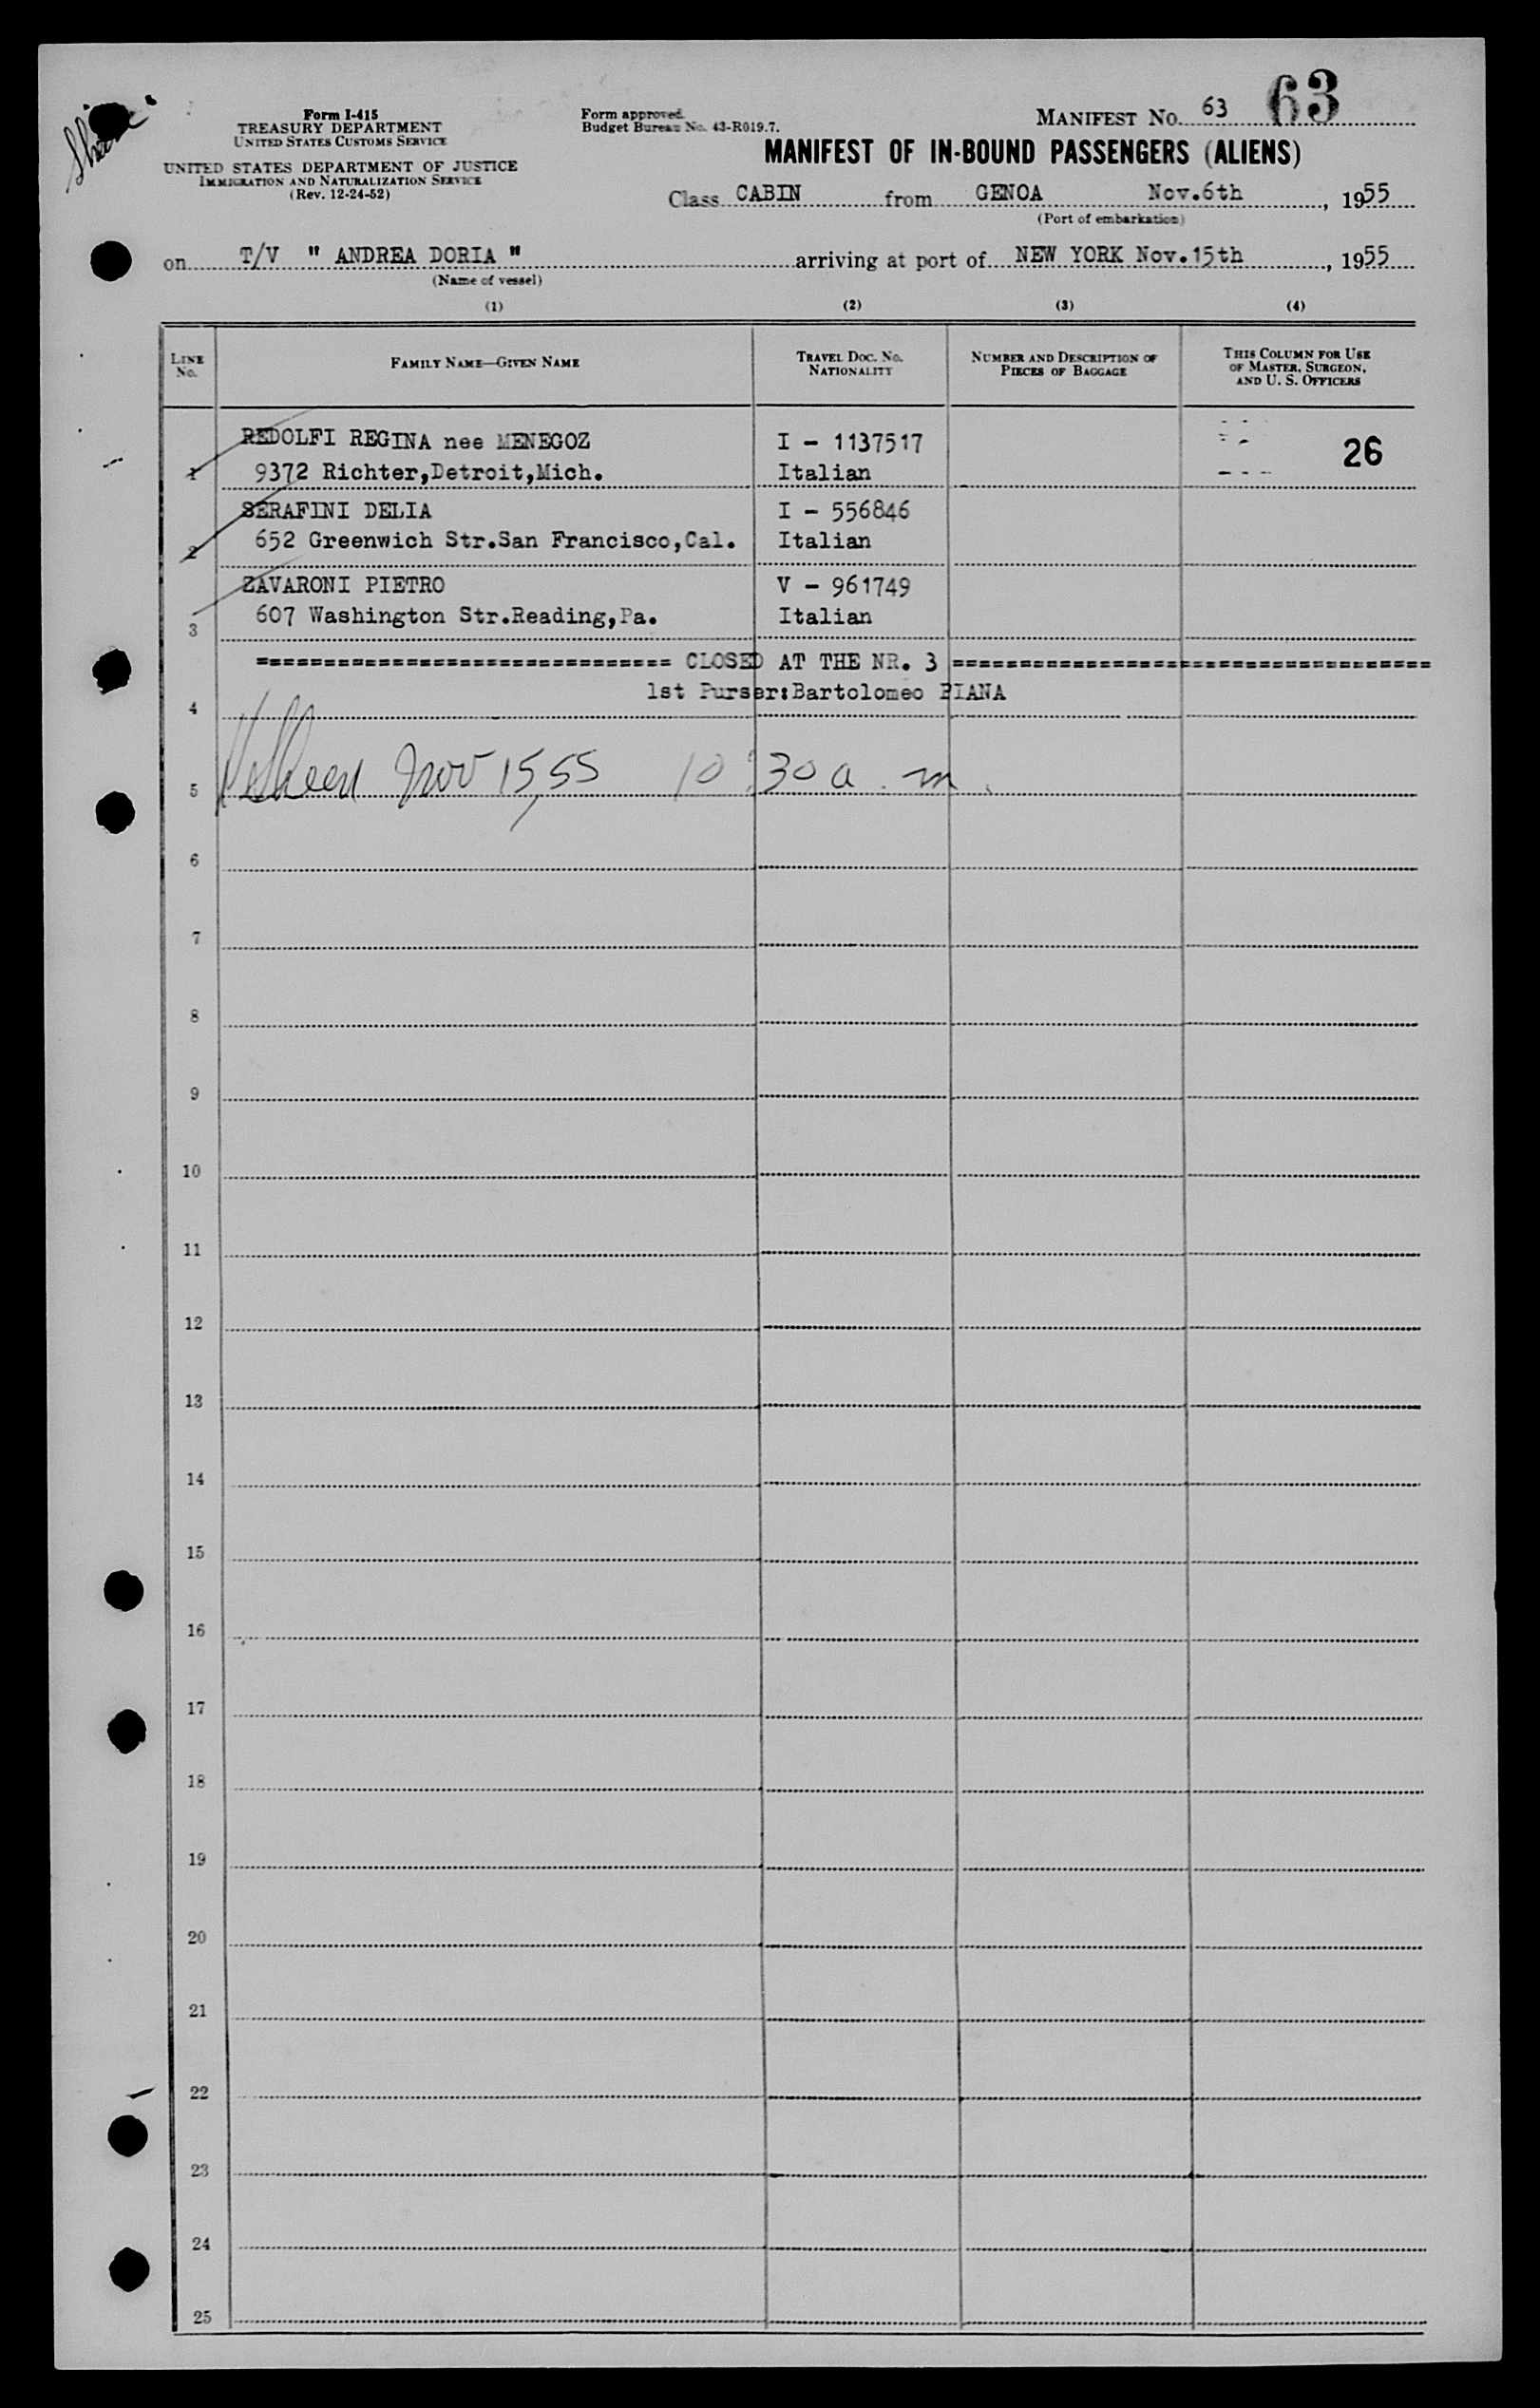 Form I-415
TREASURY DEPARTMENT
UNITED STATES CUSTOMS SERVICE
UNITED STATES DEPARTMENT OF JUSTICE
IMMIGRATION AND NATURALIZATION SERVICE
(Rev. 12-24-52)
Form approved.
Budget Bureau No. 43-R019.7.
MANIFEST NO. 63 63
MANIFEST OF IN-BOUND PASSENGERS (ALIENS)
Class CABIN from GENOA Nov.6th, 1955
(Port of embarkation)
on T/V " ANDREA DORIA " arriving at port of NEW YORK Nov.15th, 1955
(Name of vessel)
(1) (2) (3) (4)
LINE No. FAMILY NAME—GIVEN NAME TRAVEL DOC. NO. NATIONALITY NUMBER AND DESCRIPTION OF PIECES OF BAGGAGE THIS COLUMN FOR USE OF MASTER, SURGEON, AND U. S. OFFICERS
REDOLFI REGINA nee MENEGOZ I - 1137517 26
1 9372 Richter,Detroit,Mich. Italian
SERAFINI DELIA I - 556846
2 652 Greenwich Str.San Francisco,Cal. Italian
ZAVARONI PIETRO V - 961749
607 Washington Str.Reading,Pa. Italian
3
=============================== CLOSED AT THE NR. 3 ====================================
1st Purser:Bartolomeo PIANA
4
5 Nov 15, 55 10:30 a.m.
6
7
8
9
10
11
12
13
14
15
16
17
18
19
20
21
22
23
24
25